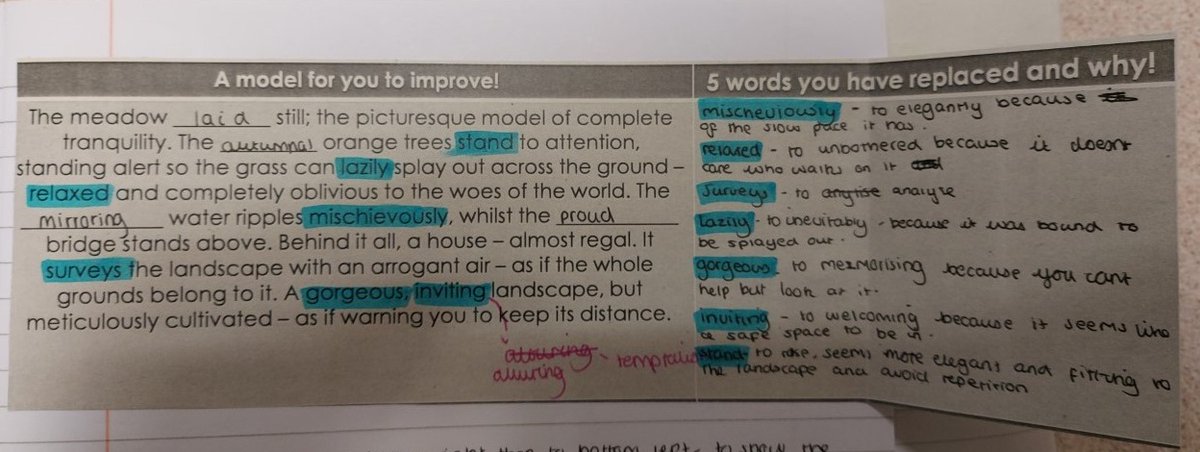 A model for you to improve!
The meadow laid still; the picturesque model of complete
tranquility. The autumnal orange trees stand to attention,
standing alert so the grass can lazily splay out across the ground –
relaxed and completely oblivious to the woes of the world. The
mirroring water ripples mischievously, whilst the proud
bridge stands above. Behind it all, a house – almost regal. It
surveys the landscape with an arrogant air – as if the whole
grounds belong to it. A gorgeous, inviting landscape, but
meticulously cultivated – as if warning you to keep its distance.
alluring
5 words you have replaced and why!
mischeviously - to elegantly because
of the slow pace it has.
relaxed - to unbothered because it doesnt
care who walks on it
surveys - to analyse
lazily - to inevitably - because it was bound to
be splayed out.
gorgeous - to mezmorising because you cant
help but look at it.
inviting - to welcoming because it seems like
a safe space to be in.
stand - to rise, seems more elegant and fitting to
the landscape and avoid repetition
to bottom left - to show the